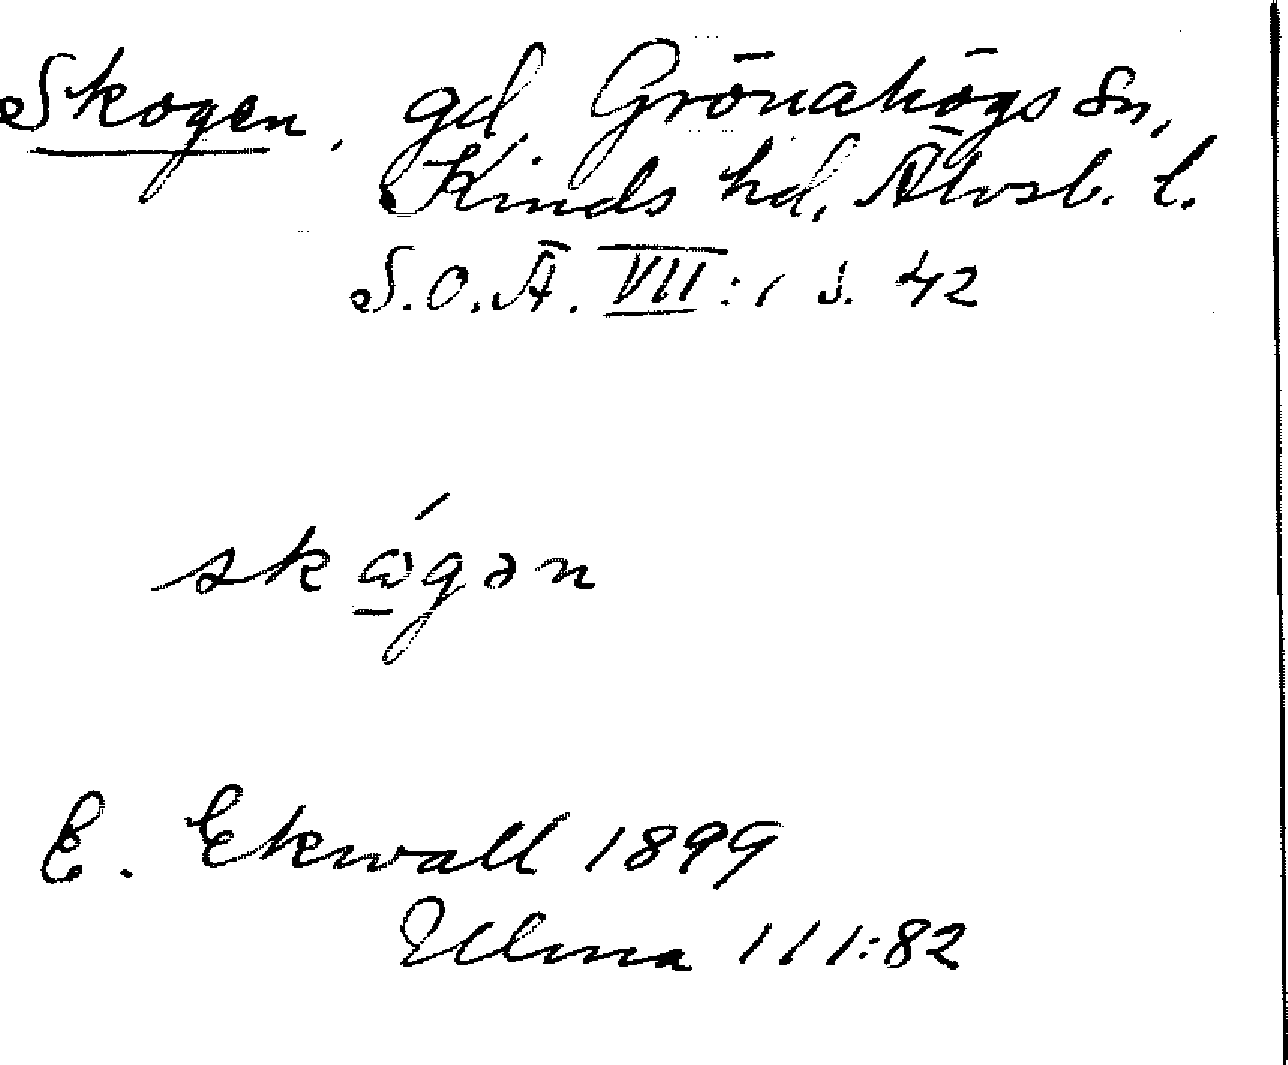 Skogen, gd, Grönahögs sn,
Kinds hd, Älvsb. l.
S.O.Ä. VII:1 s. 42
skώ̲gən
E. Ekwall 1899
Ulma 111:82